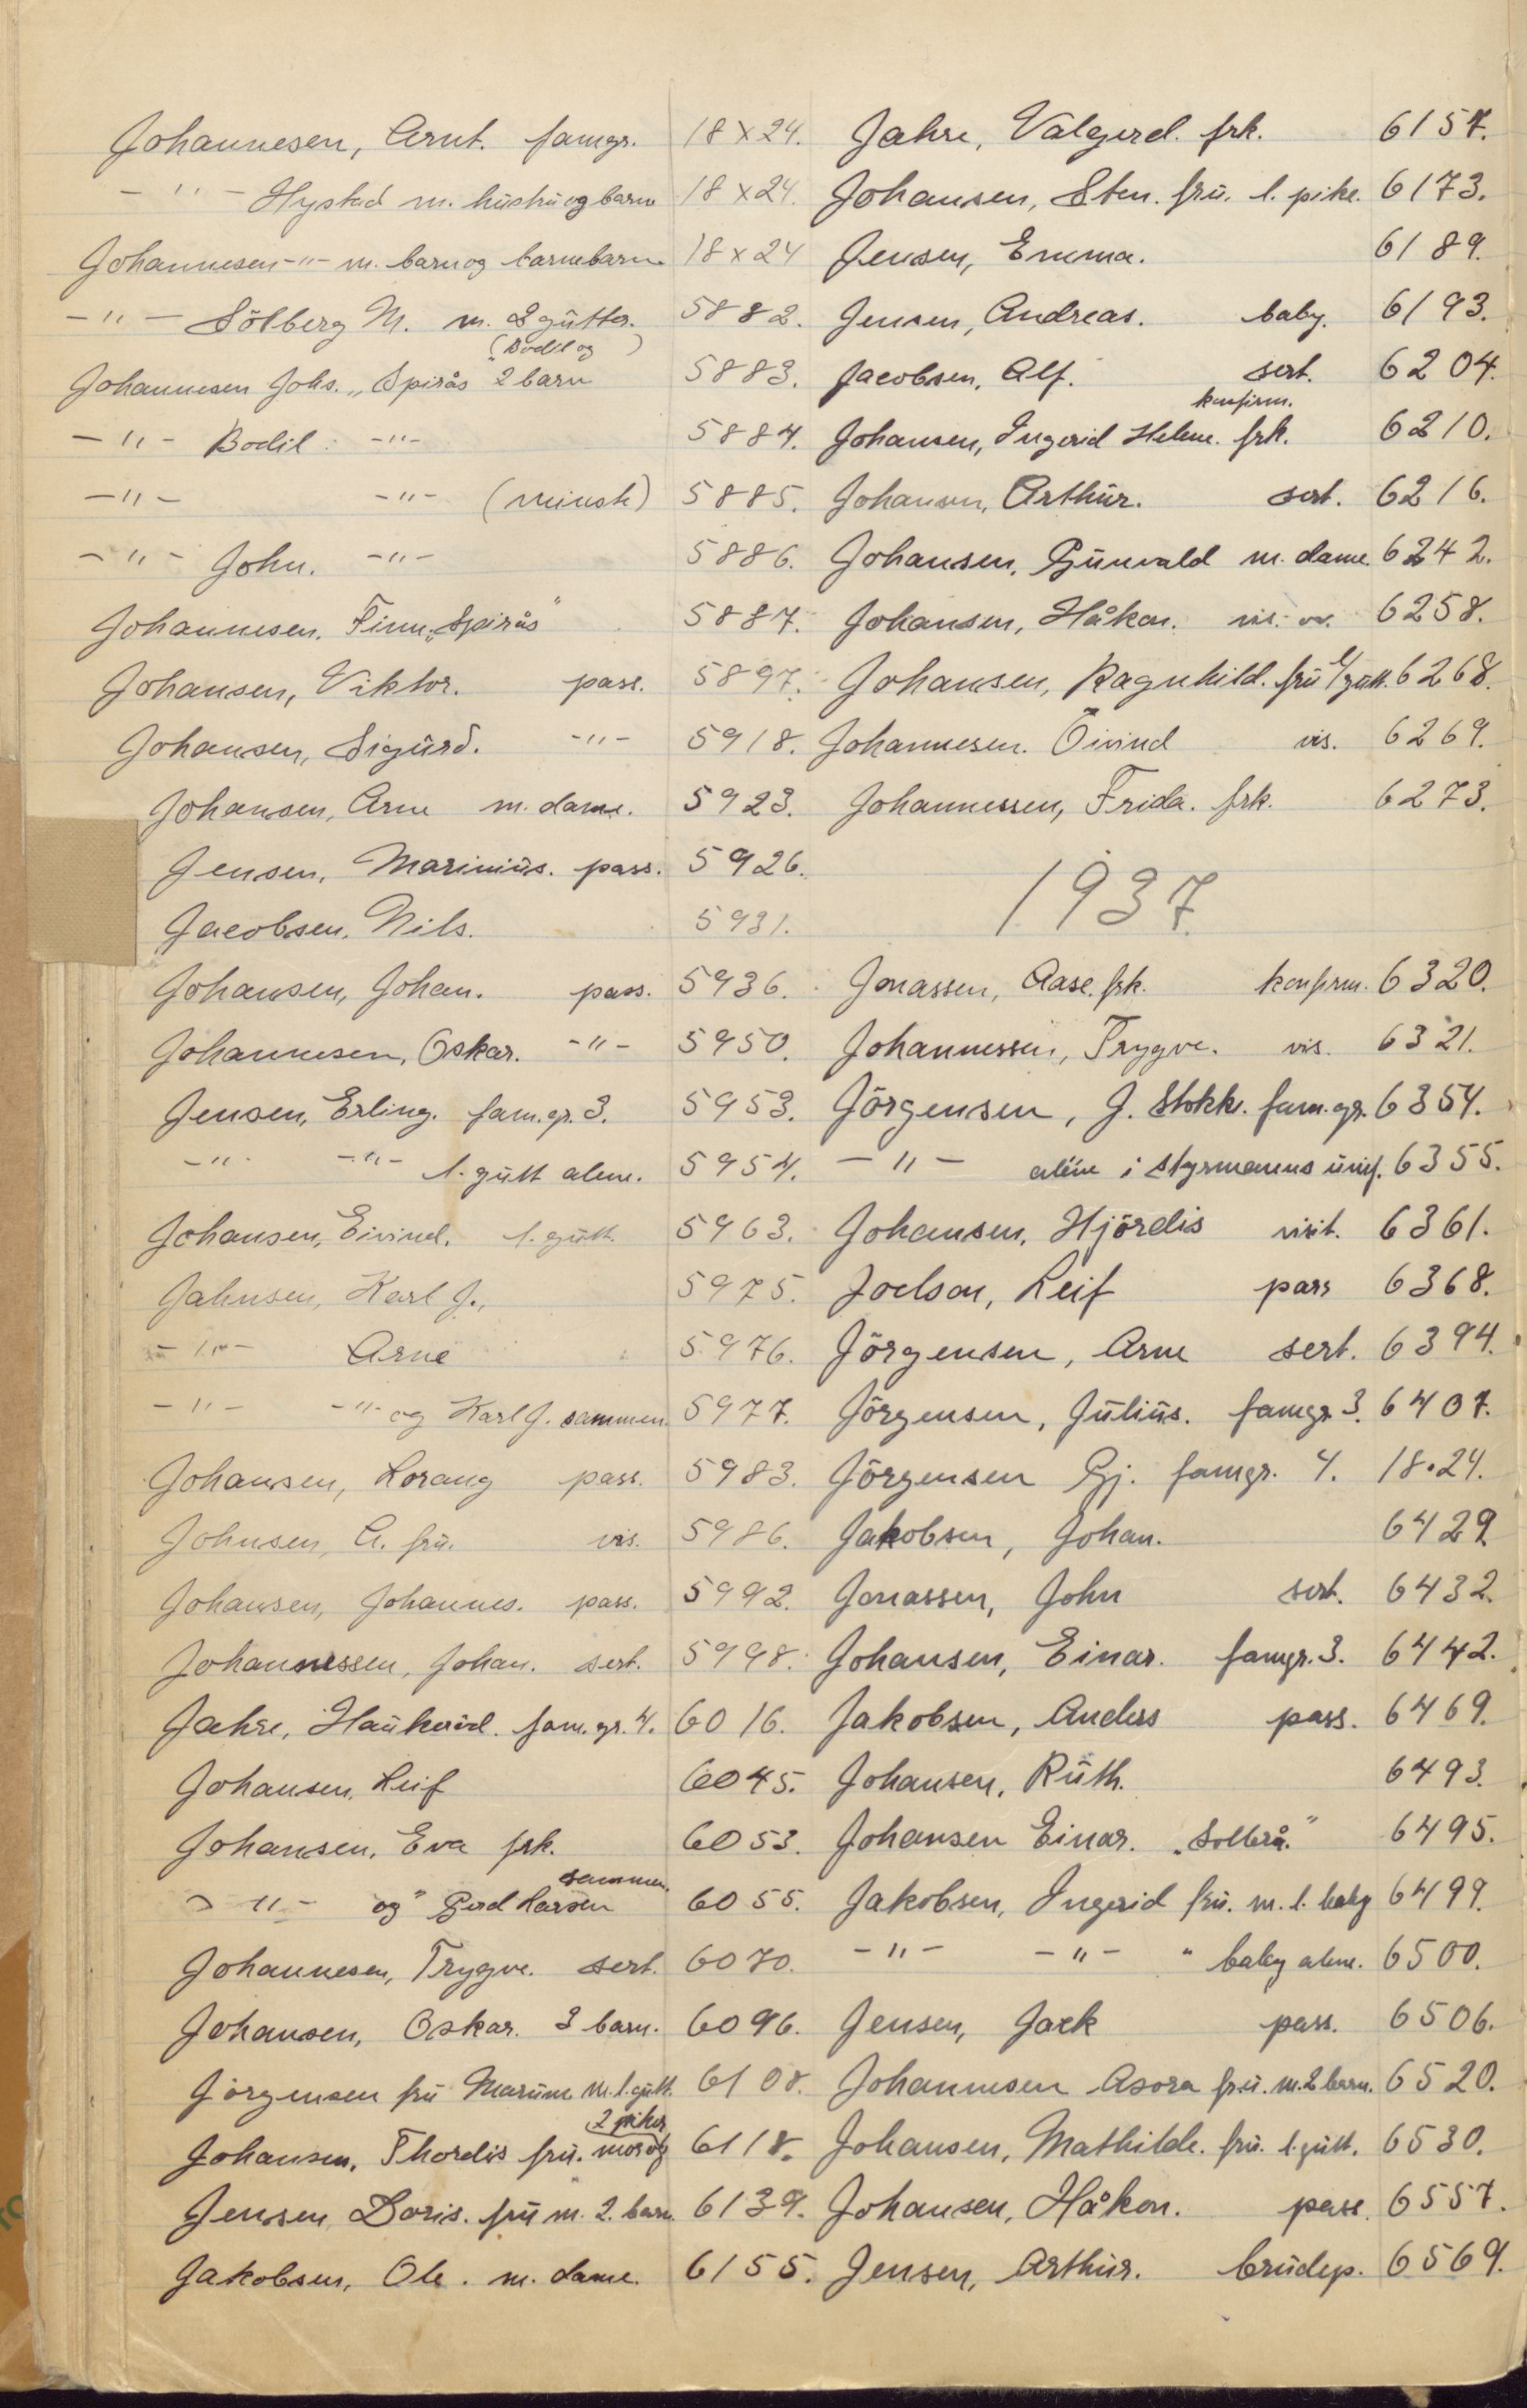 Johannesen, Arnt. famgr. 18 x 24.
- " - Hystad m. hustru og barn 18 x 24.
Johannesen - " - m. barn og barnebarn 18 x 24
- " - Sölberg M. m. 2 gutter. 5882.
(Bodil og )
Johannesen Johs. „Spirås" 2 barn 5883.
- " - Bodil: - " - 5884.
- " - - " - (minst) 5885.
- " - John. - " - 5886.
Johannesen, Finn „Spirås" 5887.
Johansen, Viktor. pass. 5897.
Johansen, Sigurd. - " - 5918.
Johansen, Arne m. dame. 5923.
Jensen, Marinius. pass. 5926.
Jacobsen, Nils. 5931.
Johansen, Johan. pass. 5936.
Johannesen, Oskar. - " - 5950.
Jensen, Erling. fam.gr. 3. 5953.
- " - - " - l. gutt alene. 5954.
Johansen, Eivind. l. gutt. 5963.
Jahnsen, Karl J., 5975.
- " - Arne 5976.
- " - - " - og Karl J. sammen. 5977.
Johansen, Lorang pass. 5983.
Johnsen, A. fru. vis. 5986.
Johansen, Johannes. pass. 5992.
Johannessen, Johan. sert. 5998.
Jahre, Haukerød. fam. gr. 4. 6016.
Johansen, Leif 6045.
Johansen, Eva frk. 6053.
sammen.
- " - og " Gerd Larsen 6055.
Johannesen, Trygve. sert. 6070.
Johansen, Oskar. 3 barn. 6096.
Jörgensen fru Marume m. l. gutt. 6108.
2 piker
Johansen, Thordis fru. mor og 6118.
Jensen, Doris. fru m. 2. barn. 6139.
Jakobsen, Ole. m. dame. 6155.
Jahre, Valgerd. frk. 6157.
Johansen, Sten. fru. l. pike. 6173.
Jensen, Emma. 6189.
Jensen, Andreas. baby. 6193.
Jacobsen, Alf. sert. 6204.
konfirm.
Johansen, Ingerid Helene. frk. 6210.
Johansen, Arthur. sert. 6216.
Johansen, Gunvald m. dame. 6242.
Johansen, Håkon. vis. 6258.
Johansen, Ragnhild. fru l/gutt. 6268.
Johannesen. Öivind vis. 6269.
Johannessen, Frida. frk. 6273.
1937.
Jonassen, Aase. frk. konfirm. 6320.
Johannessen, Trygve. vis. 6321.
Jörgensen, J. Stokk. fam. gr. 6354.
- " - aléne i styrmanns unif. 6355.
Johansen, Hjördis visit. 6361.
Joelson, Leif pass 6368.
Jörgensen, Arne sert. 6394.
Jörgensen, Julius. famgr. 3. 6407.
Jörgensen Gj. famgr. 4. 18·24.
Jakobsen, Johan. 6429
Jonassen, John sert. 6432.
Johansen, Einar. famgr. 3. 6442.
Jakobsen, Anders pass. 6469.
Johansen, Ruth. 6493.
Johansen Einar. „Solbrå." 6495.
Jakobsen, Ingerid fru. m. l. baby 6499.
- " - - " - " baby alene. 6500.
Jensen, Jack pass. 6506.
Johannesen Asora fru. m. 2 barn. 6520.
Johansen, Mathilde. fru. l. gutt. 6530.
Johansen, Håkon. pass. 6557.
Jensen, Arthur. brudep. 6569.